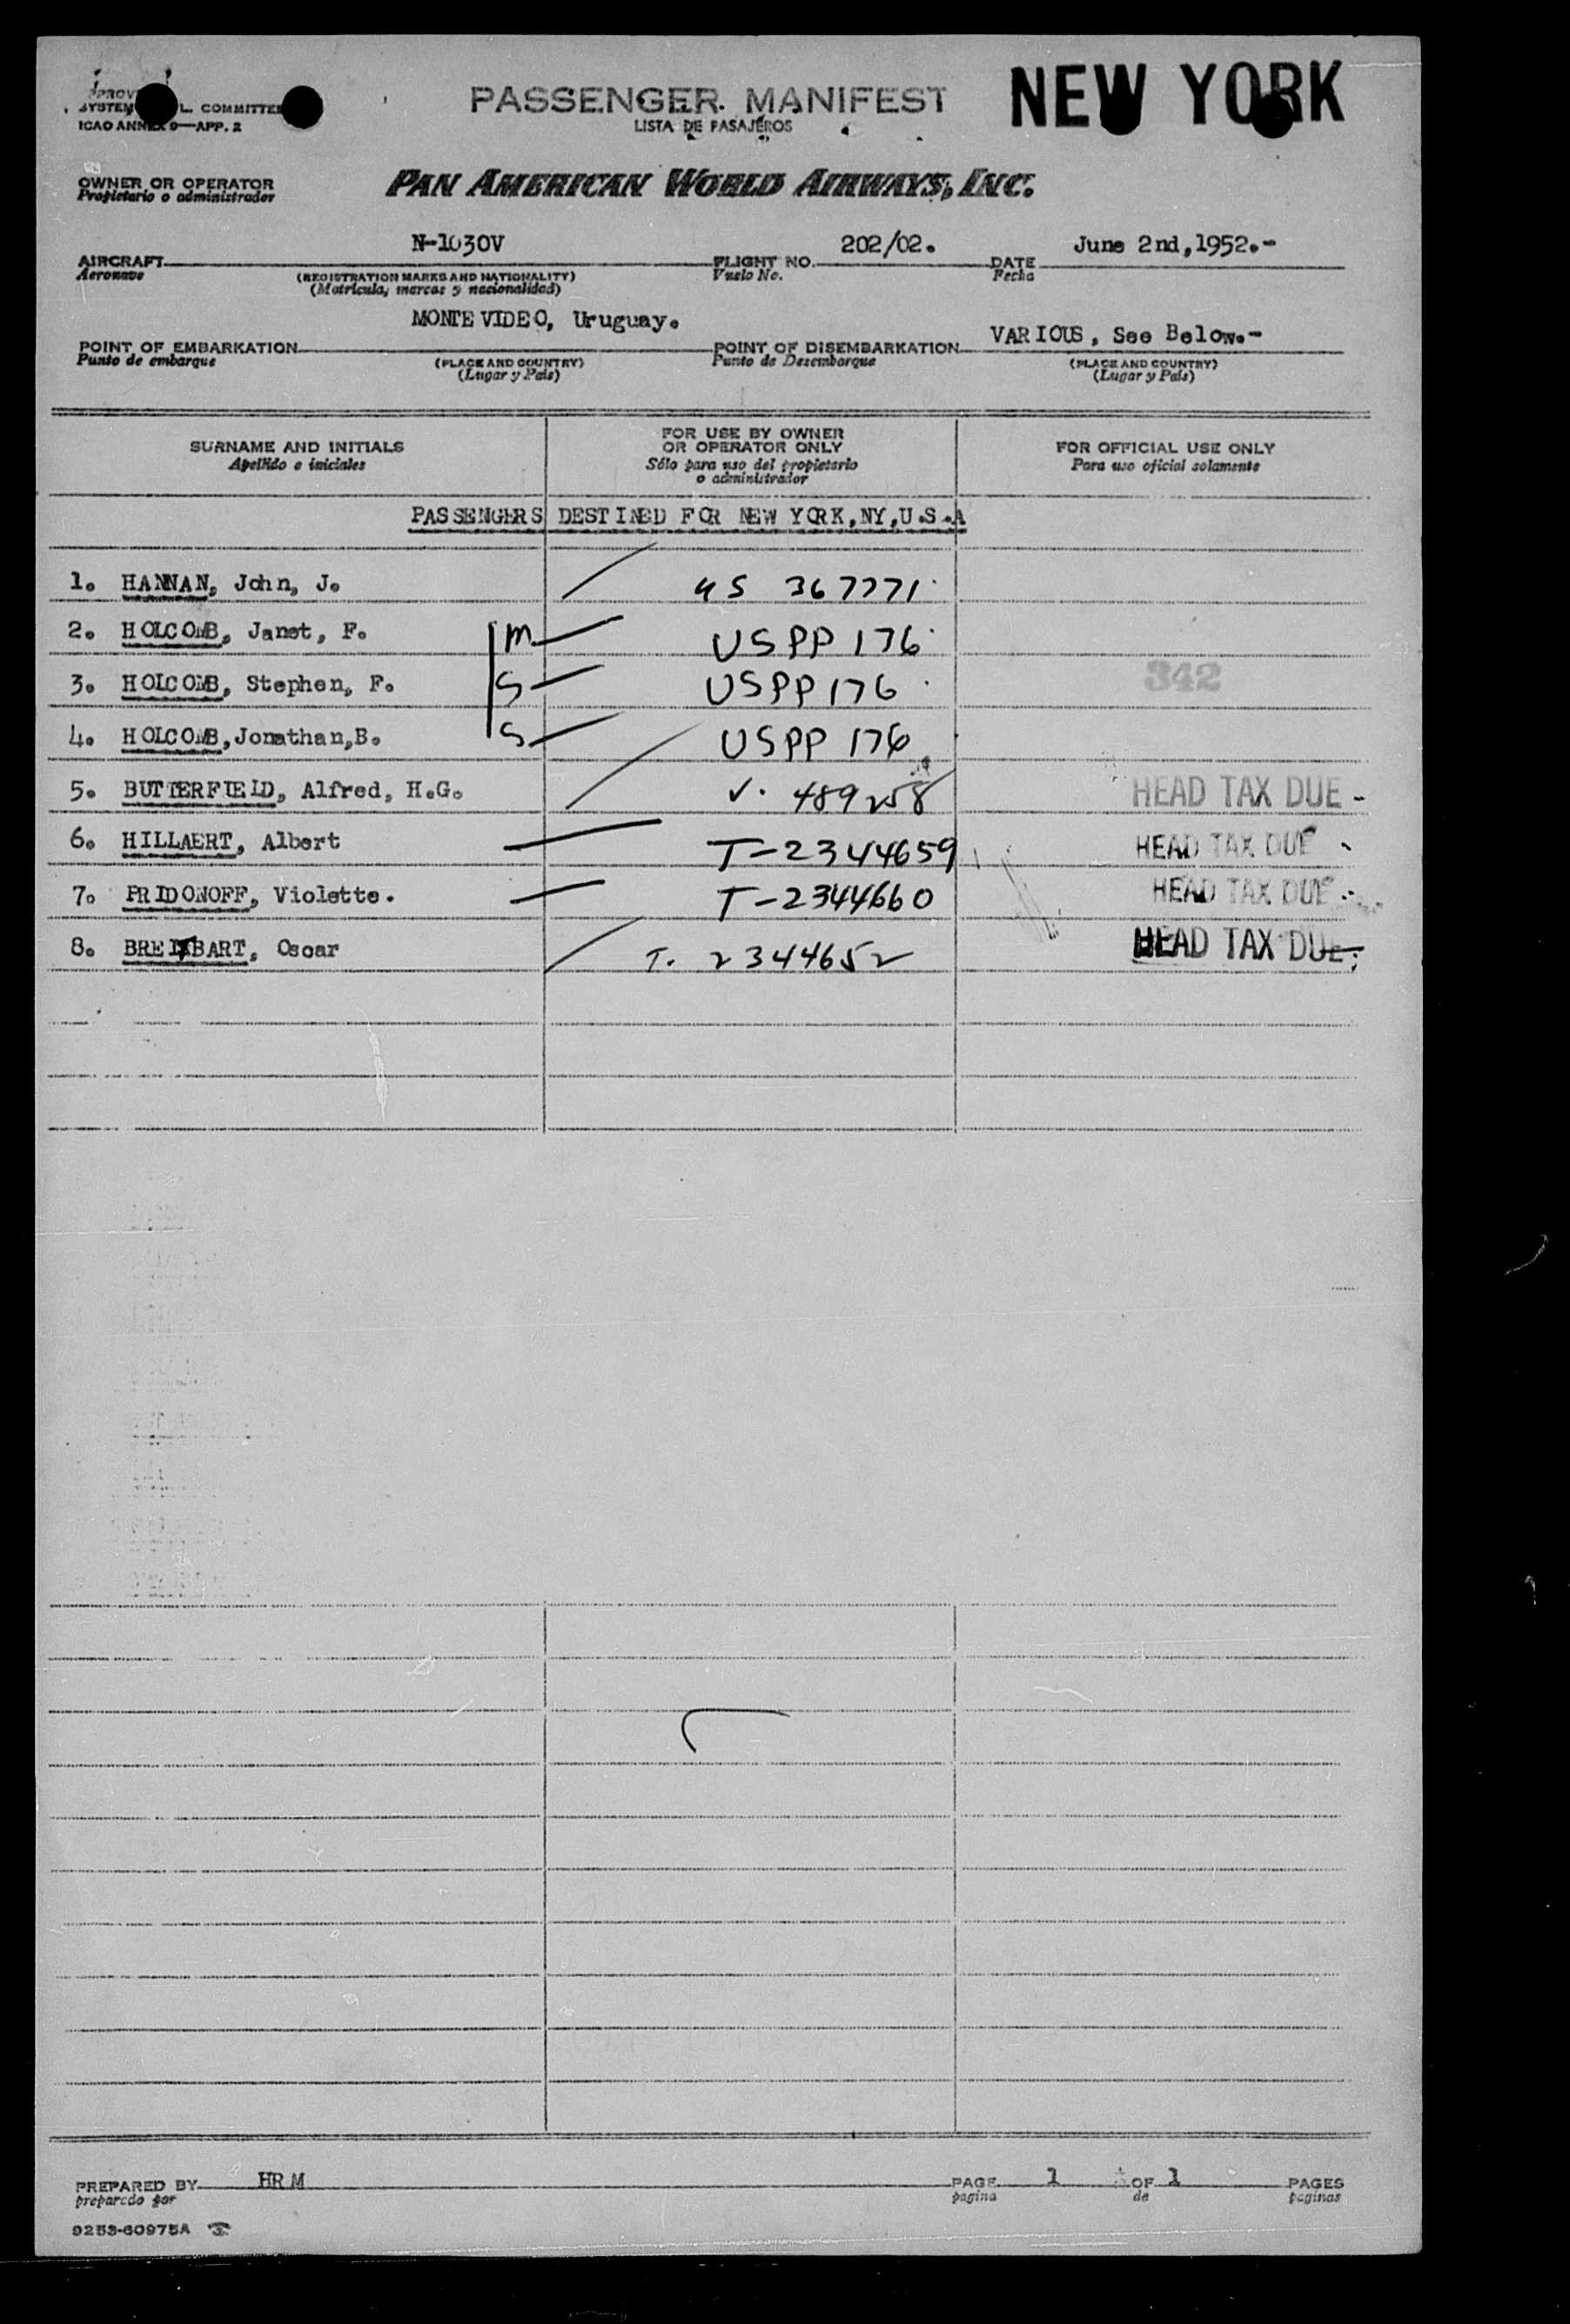 SYSTEM L. COMMITTEE
ICAO ANNEX 9—APP. 2
PASSENGER MANIFEST
LISTA DE PASAJEROS
NEW YORK
OWNER OR OPERATOR
Propietario o administrador
PAN AMERICAN WORLD AIRWAYS, INC.
AIRCRAFT N-1030V
Aeronave
(REGISTRATION MARKS AND NATIONALITY)
(Matricula, marcas y nacionalidad)
FLIGHT NO. 202/02.
Vuelo No.
DATE June 2nd,1952.-
Fecha
POINT OF EMBARKATION MONTEVIDEO, Uruguay.
Punto de embarque
(PLACE AND COUNTRY)
(Lugar y País)
POINT OF DISEMBARKATION VARIOUS, See Below.-
Punto de Desembarque
(PLACE AND COUNTRY)
(Lugar y País)
SURNAME AND INITIALS
Apellido e iniciales
FOR USE BY OWNER
OR OPERATOR ONLY
Sólo para uso del propietario
o administrador
FOR OFFICIAL USE ONLY
Para uso oficial solamente
PASSENGERS DESTINED FOR NEW YORK,NY,U.S.A
1. HANNAN, John, J. US 367771
2. HOLCOMB, Janet, F. M USPP 176
3. HOLCOMB, Stephen, F. S USPP 176 342
4. HOLCOMB,Jonathan,B. S USPP 176
5. BUTTERFIELD, Alfred, H.G. V. 489258 HEAD TAX DUE -
6. HILLAERT, Albert T-2344659 HEAD TAX DUE -
7. PRIDONOFF, Violette. T-2344660 HEAD TAX DUE -
8. BREITBART, Oscar T. 2344652 HEAD TAX DUE
PREPARED BY HRM
preparado por
PAGE 1 OF 1 PAGES
pagina de paginas
9253-60975A